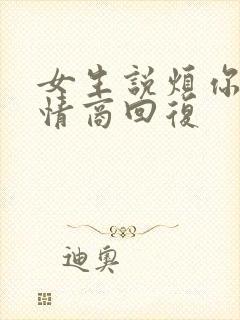 女生説煩你
情商回復
迪奧